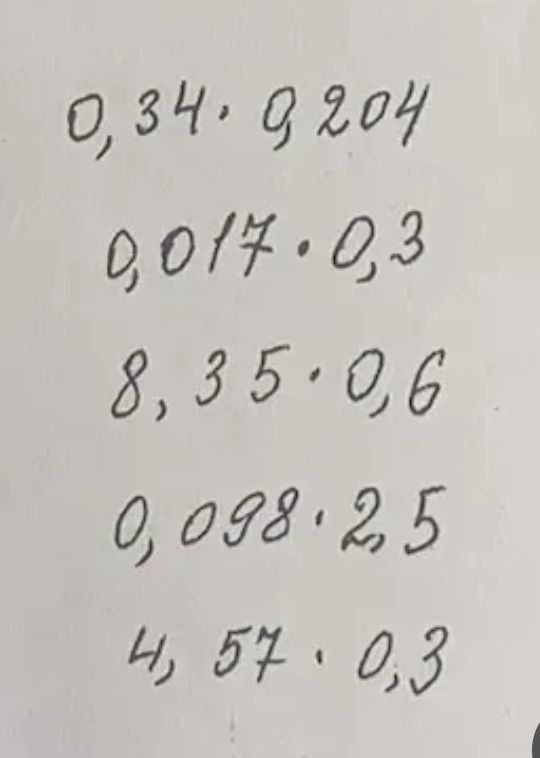 0,34 · 0,204
0,017 · 0,3
8,35 · 0,6
0,098 · 2,5
4,57 · 0,3